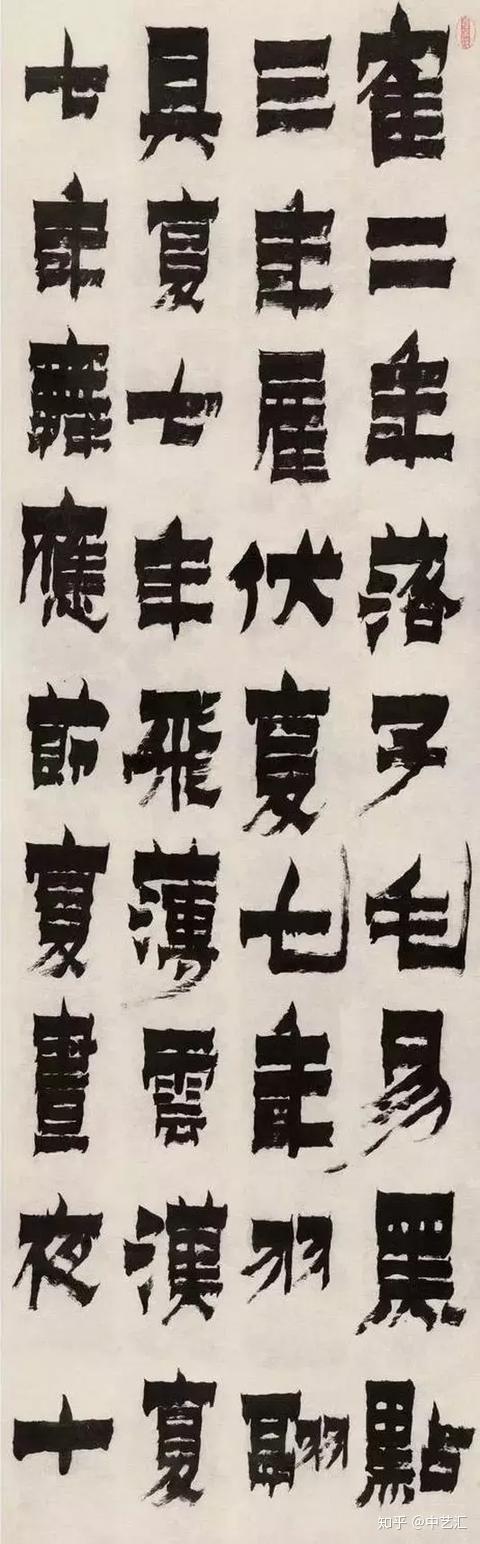 隺二年落子毛易黑點
三年產伏复七年羽翮
具复七年飛薄雲漢复
七年舞應節复晝夜十
知乎 @中艺汇